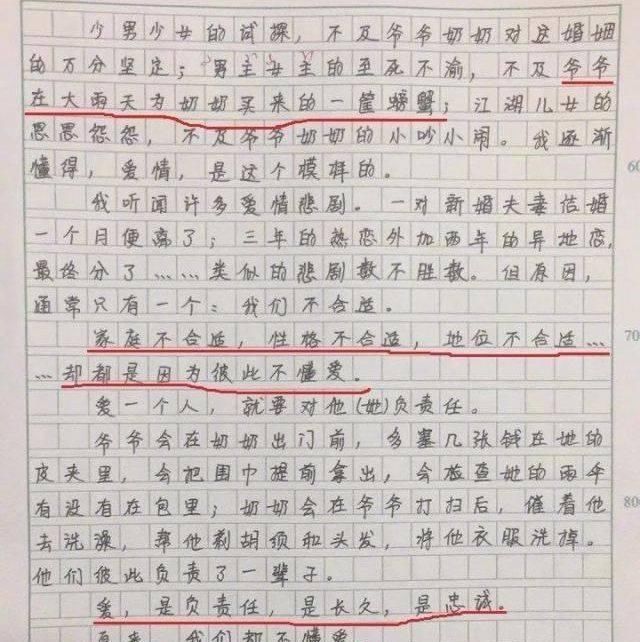 少男少女的试探，不及爷爷奶奶对这婚姻
的万分坚定；男主女主的至死不渝，不及爷爷
在大雨天为奶奶买来的一筐螃蟹；江湖儿女的
恩恩怨怨，不及爷爷奶奶的小吵小闹。我逐渐
懂得，爱情，是这个模样的。
60
我听闻许多爱情悲剧。一对新婚夫妻结婚
一个月便离了；三年的热恋外加两年的异地恋，
最终分了……类似的悲剧数不胜数。但原因，
通常只有一个：我们不合适。
家庭不合适，性格不合适，地位不合适…
70
…却都是因为彼此不懂爱。
爱一个人，就要对他(她)负责任。
爷爷会在奶奶出门前，多塞几张钱在她的
皮夹里，会把围巾提前拿出，会检查她的雨伞
有没有在包里；奶奶会在爷爷打扫后，催着他
80
去洗澡，帮他剃胡须和头发，将他衣服洗掉。
他们彼此负责了一辈子。
爱，是负责任，是长久，是忠诚。
原来，我们都不懂爱